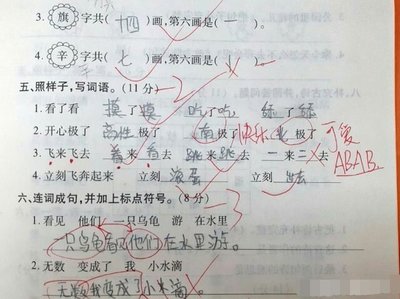 3. 旗 字共(十四)画,第六画是(一)。
4. 辛 字共(七)画,第六画是( )。
五、照样子,写词语。(11 分) -2
1. 看了看 摸了摸 吃了吃
2. 开心极了 高性极了 南极了 快乐 极了 可爱
3. 飞来飞去 着来看去 跳来跳去 一来二去 ABAB.
4. 立刻飞奔起来 立刻滚蛋 立刻出去
六、连词成句,并加上标点符号。(8 分) -3
1. 看见 他们 一只乌龟 游 在水里
一只乌龟看见他们在水里游。
2. 无数 变成了 我 小水滴
无数我变成了小水滴